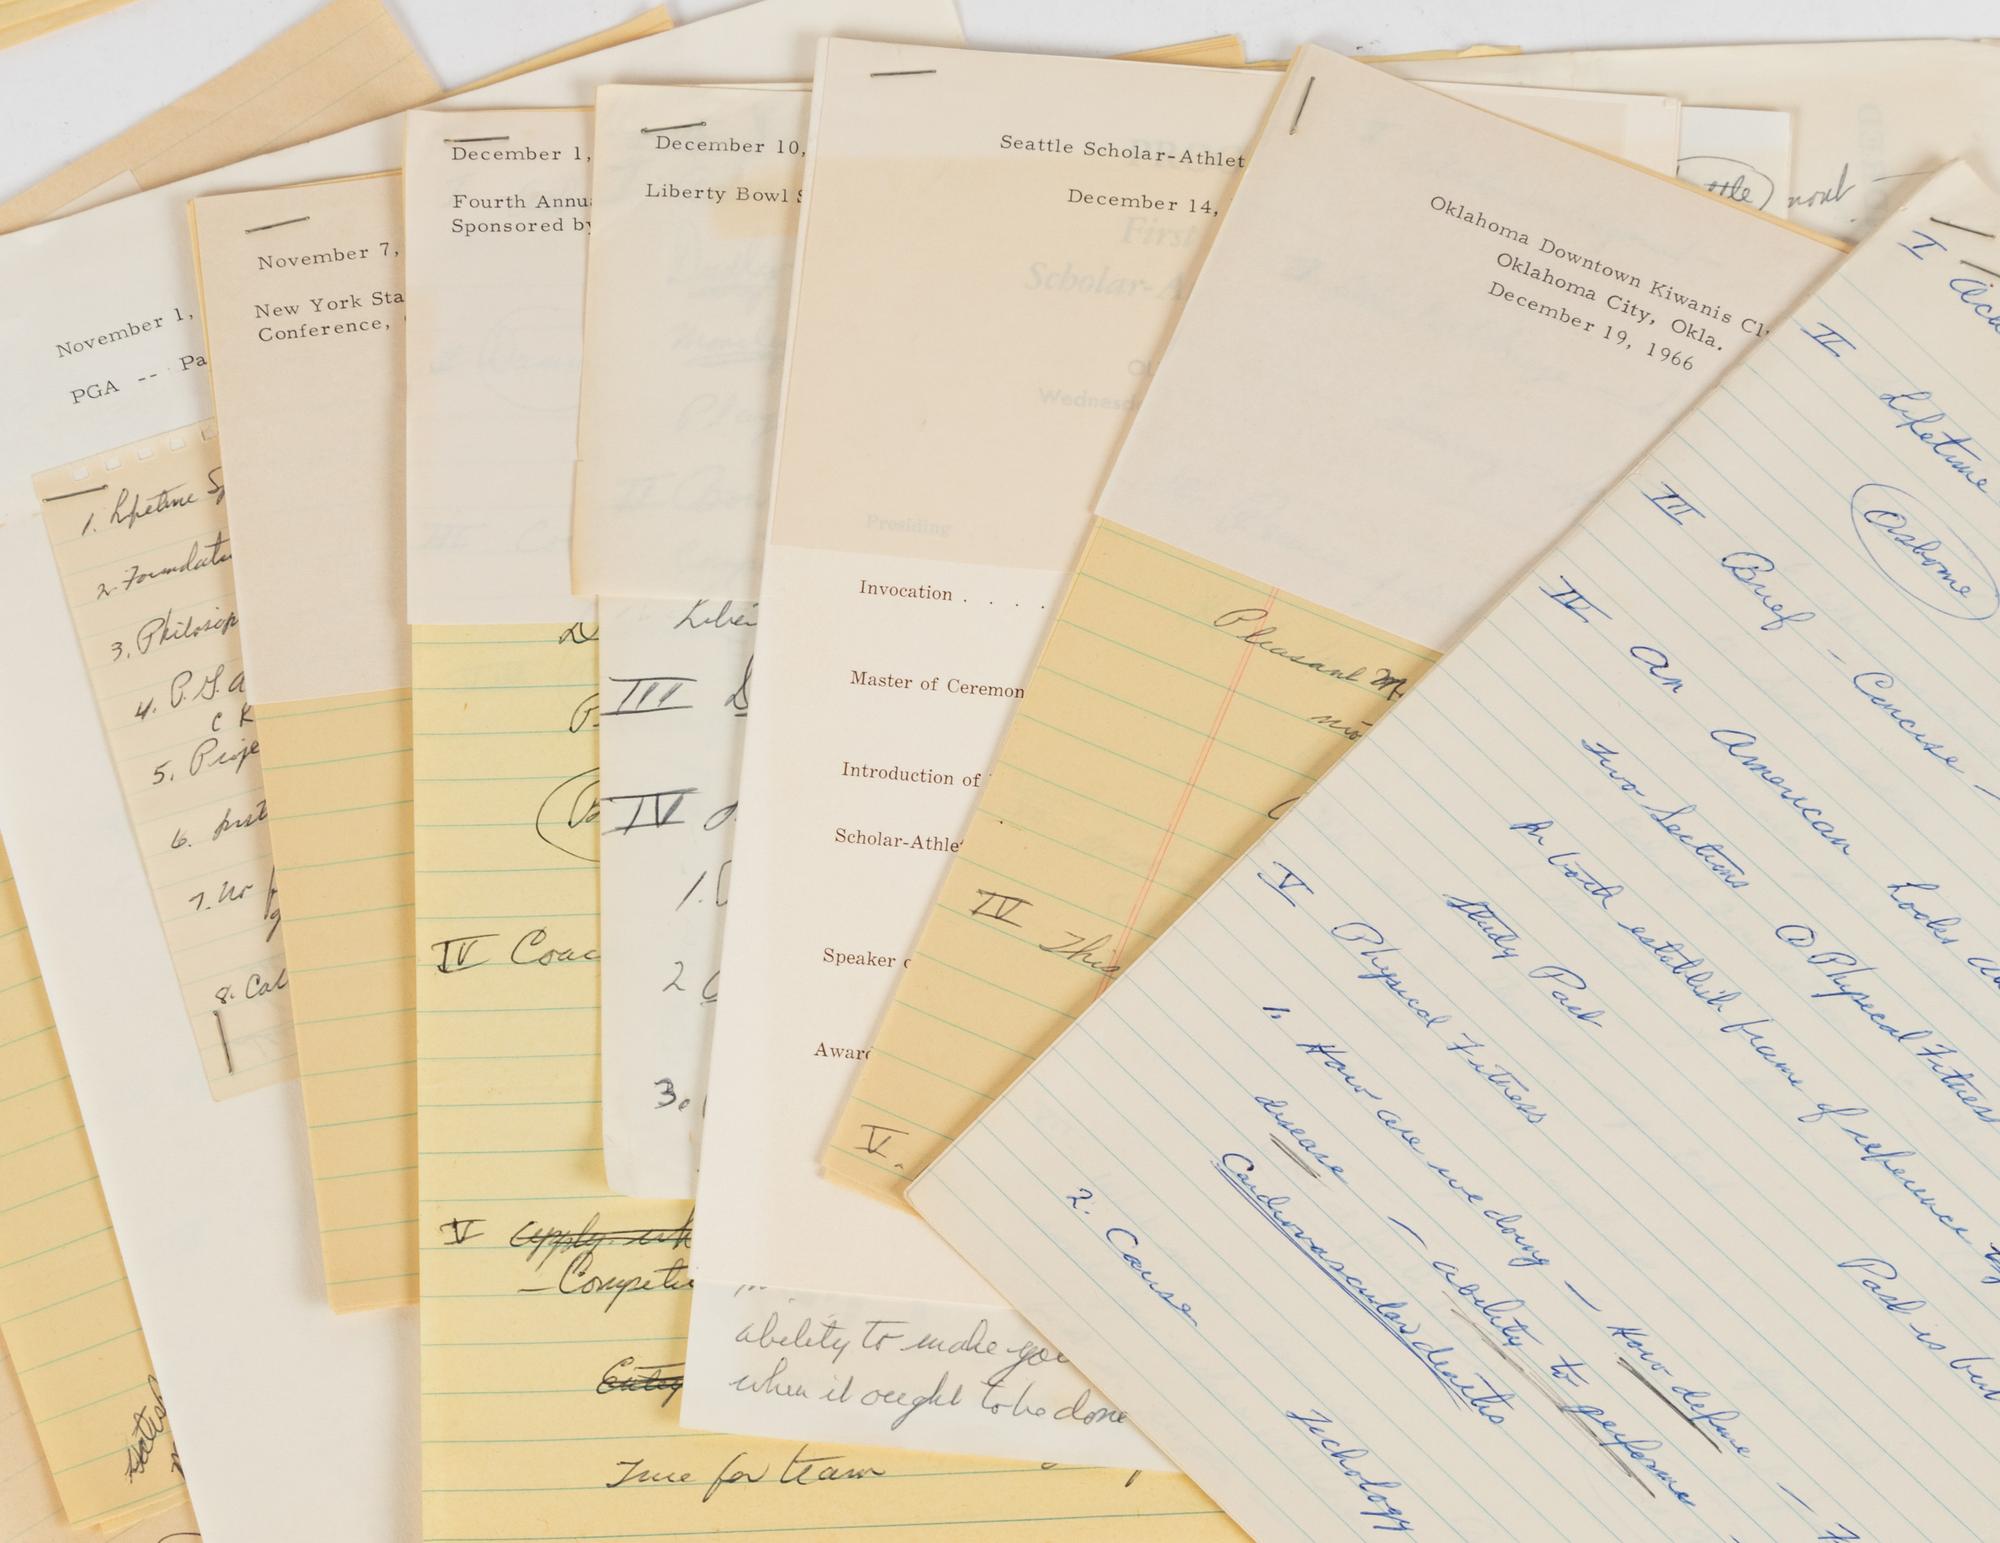 November 1,
PGA -- Pa
1. Lifetime Sp
2. Foundati
3. Philosop
4. P.G.A
C K
5. Proje
6. Just
7. No
8. Cal
November 7,
New York Sta
Conference,
December 1,
Fourth Annu
Sponsored by
IV Coac
V apply
- Competi
Time for team
December 10,
Liberty Bowl S
III
IV
1.
2
3.
Seattle Scholar-Athlet
December 14,
First
Scholar-A
Wednesd
Presiding
Invocation . . . .
Master of Ceremon
Introduction of
Scholar-Athlet
Speaker o
Award
ability to make you
when it ought to be done
Oklahoma Downtown Kiwanis Cl
Oklahoma City, Okla.
December 19, 1966
Pleasant M
IV This
V.
I
II Lifetime
Osborne
III Brief - Concise -
IV An American Looks a
Two Sections @ Physical Fitness
In both establish frame of reference
Study Past Past is but
V Physical Fitness
1. How are we doing - How define -
disease - ability to perform -
Cardiovascular deaths
2. Cause
Technology